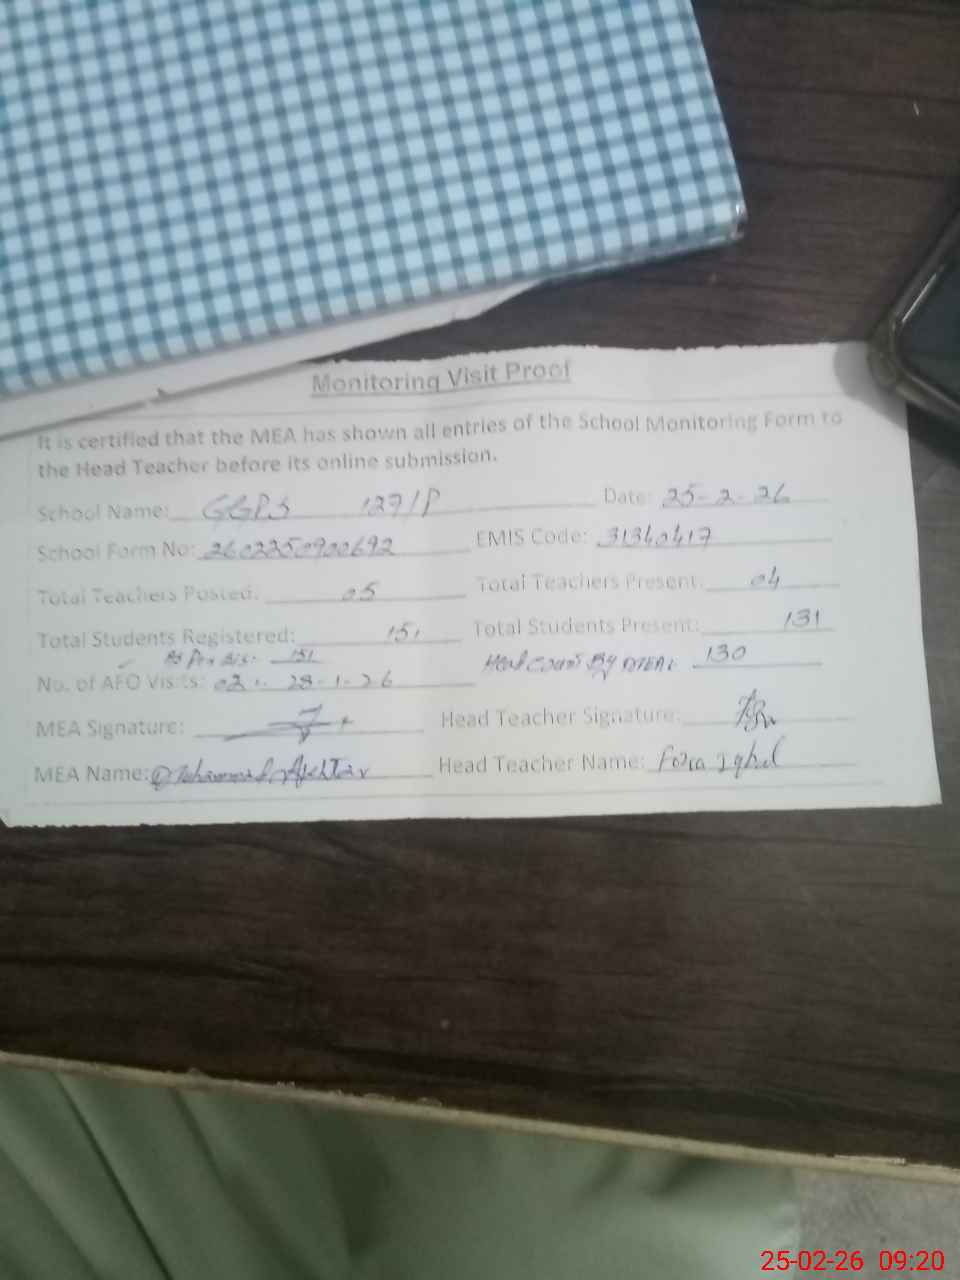 Monitoring Visit Proof
It is certified that the MEA has shown all entries of the School Monitoring Form to
the Head Teacher before its online submission.
School Name: GGPS 127/P Date: 25-2-26
School Form No: 2602250900692 EMIS Code: 31340417
Total Teachers Posted: 05 Total Teachers Present: 04
Total Students Registered: 151 Total Students Present: 131
As Per SIS: 151 Head Count By MEA: 130
No. of AEO Visits: 02 28-1-26
MEA Signature: Head Teacher Signature:
MEA Name: Muhammad Akhtar Head Teacher Name: Fozia Iqbal
25-02-26 09:20